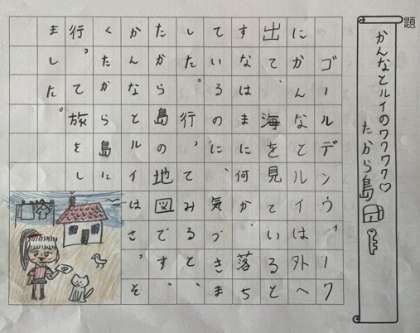 題
かんなとルイのワクワク♡
たから島
ゴールデンウィーク
にかんなとルイは外へ
出て、海を見ていると
すなはまに何かが落ち
ているのに気づきま
した。行ってみると
たから島の地図です。
かんなとルイはさっそ
くたから島に
行って、旅をし
ました。